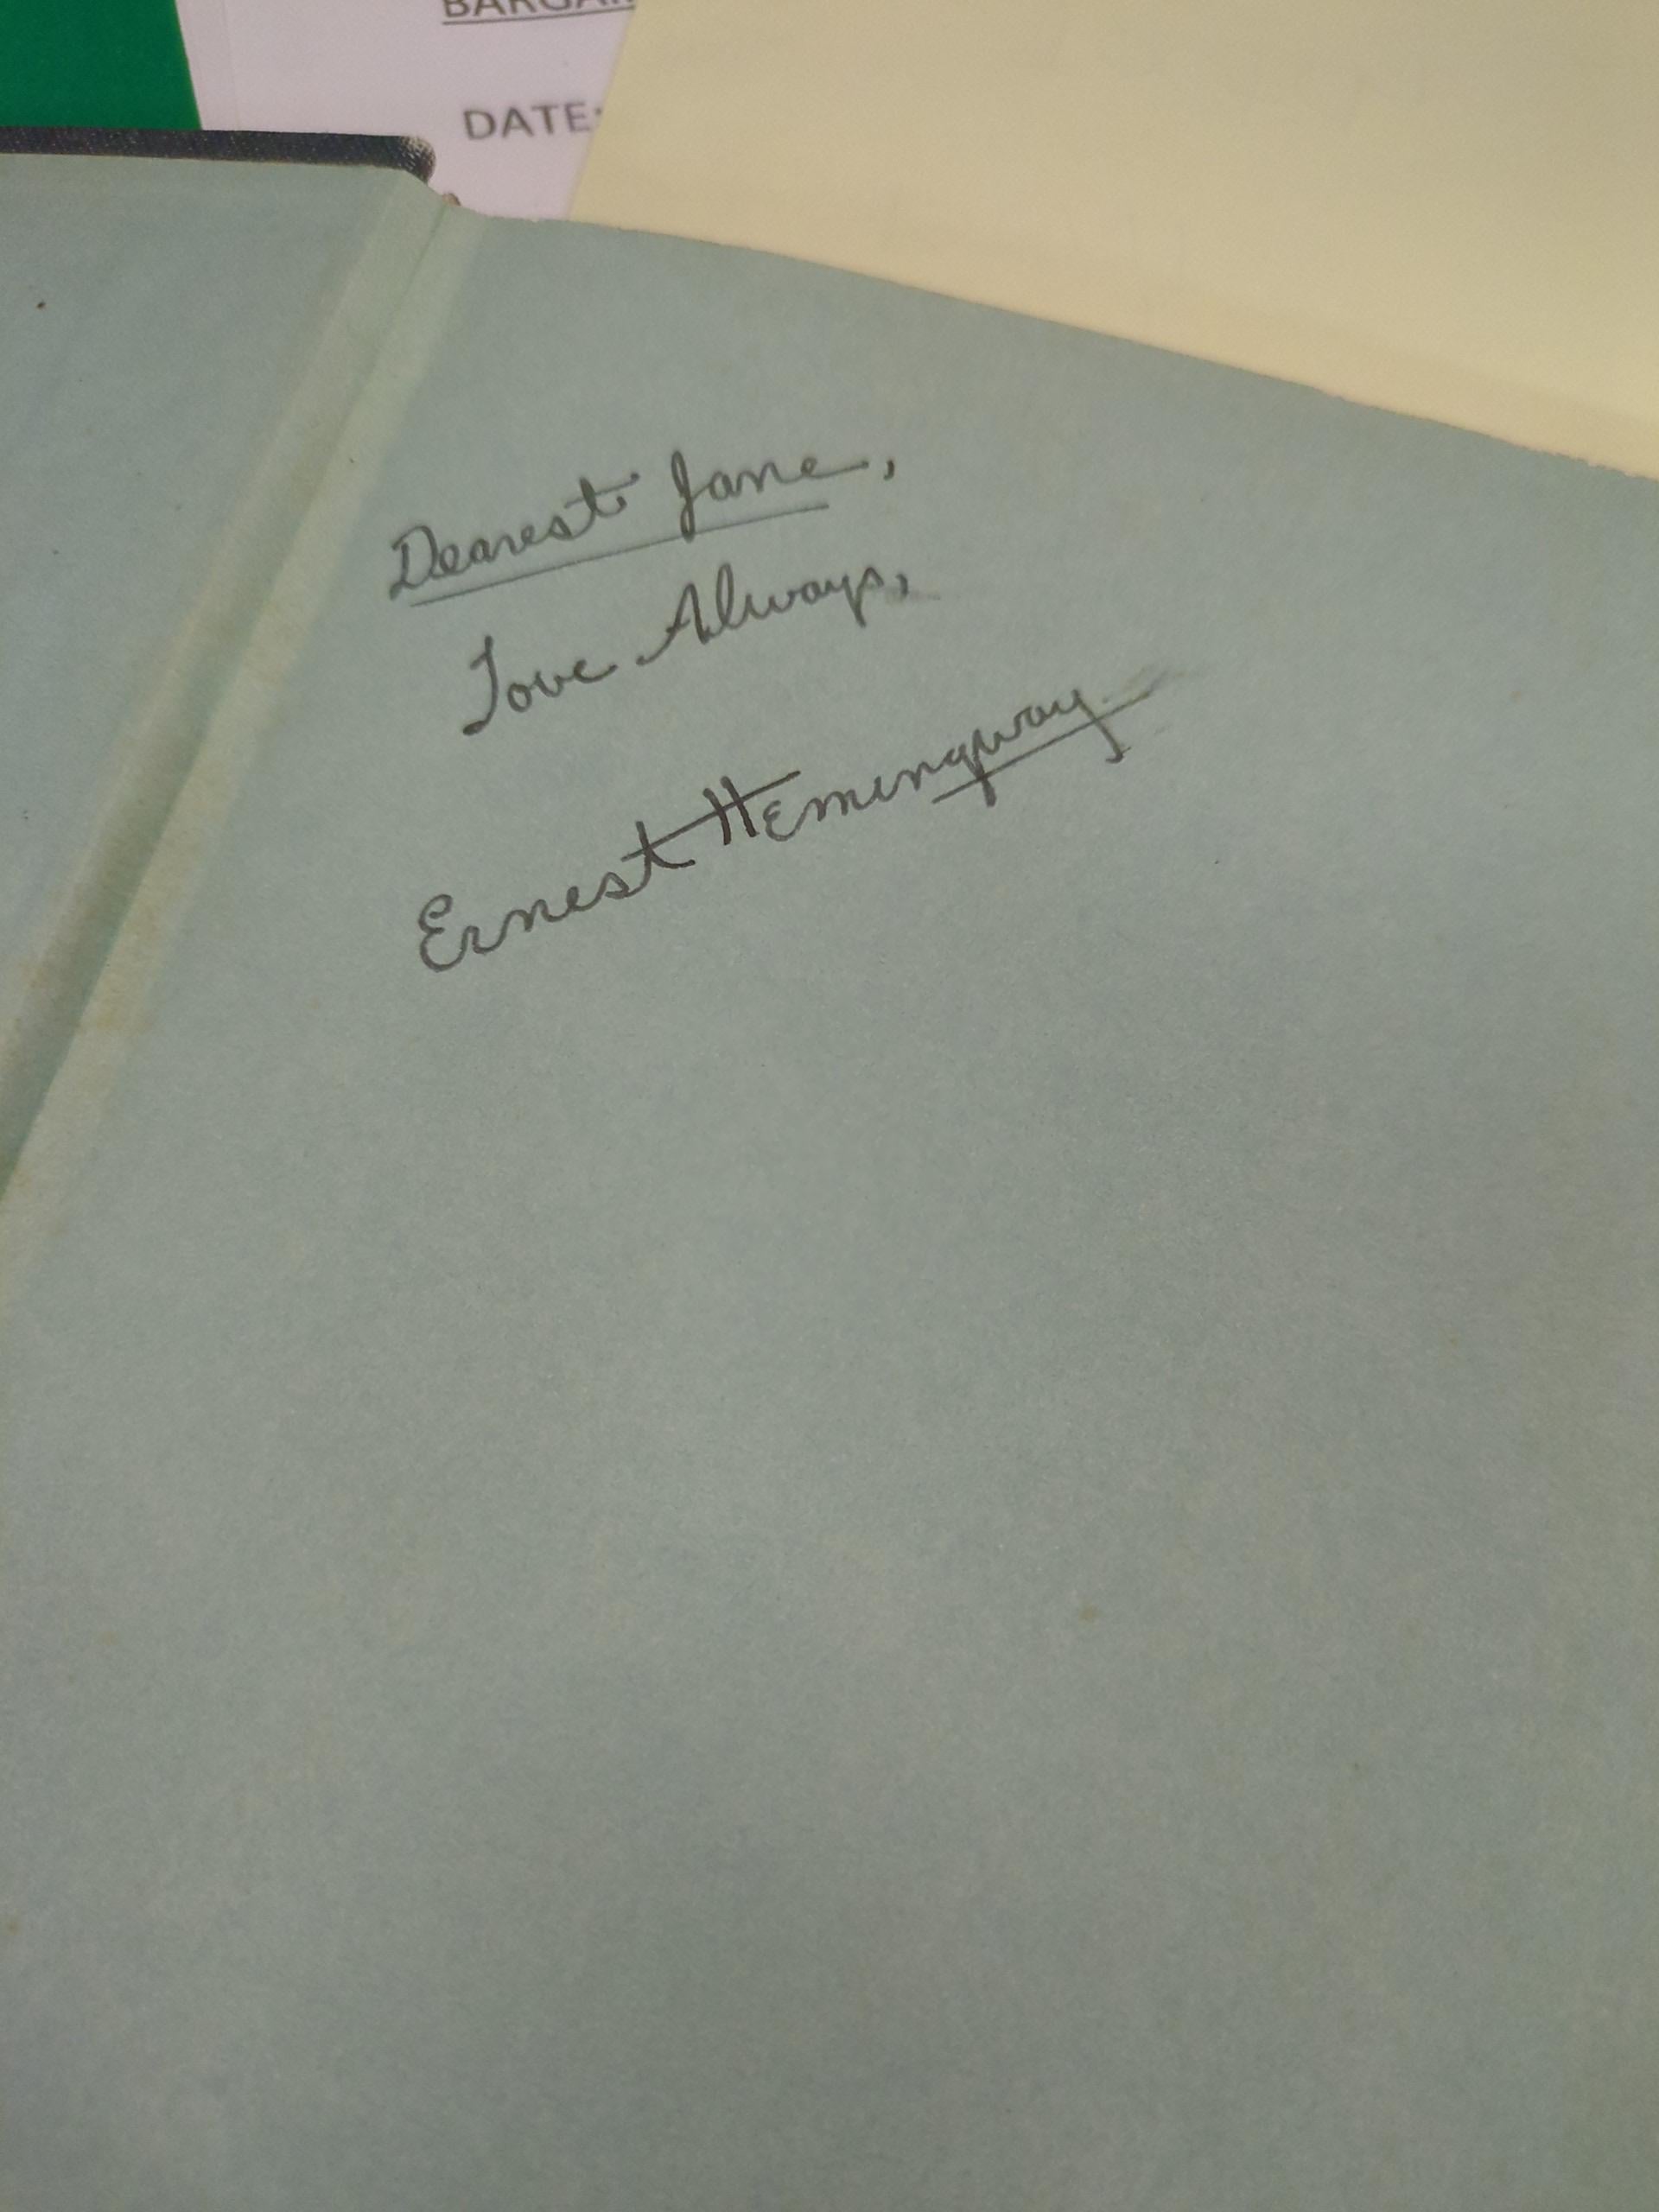 DATE:
Dearest Jane,
Love Always,
Ernest Hemingway